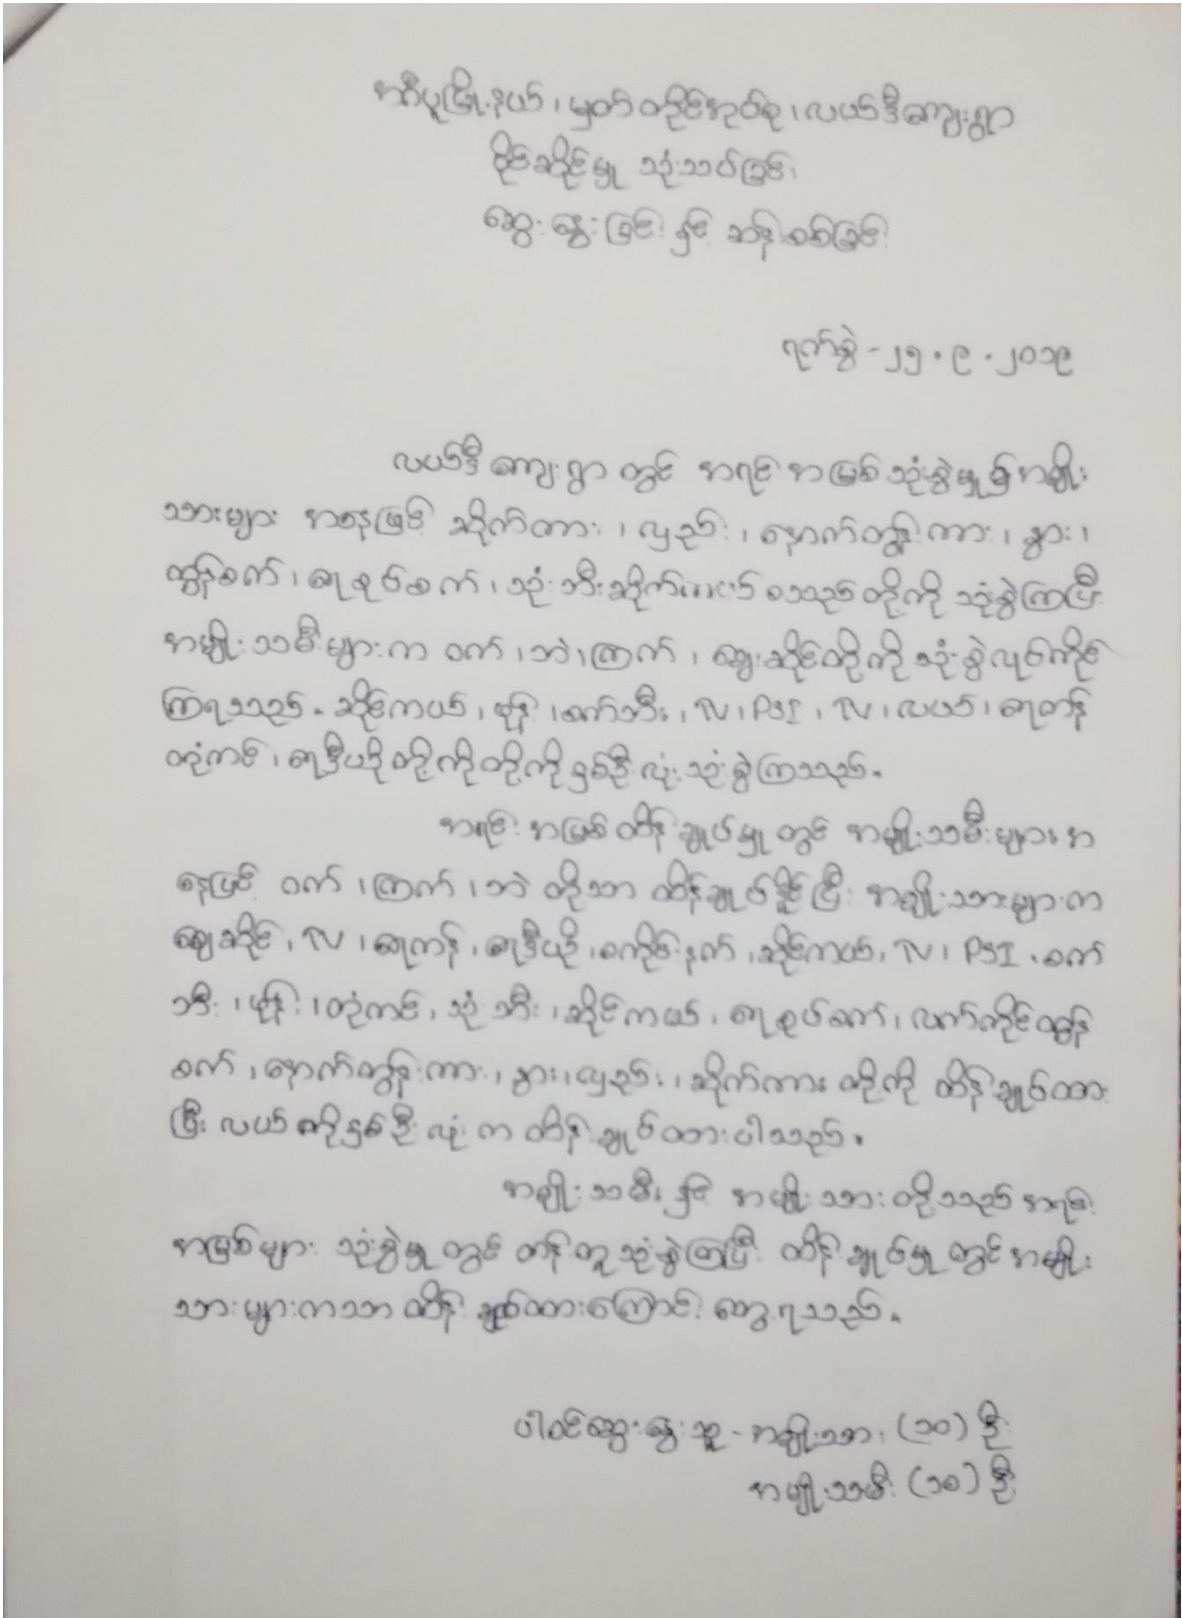 အင်္ဂပူမြို့နယ်၊ မှတ်တိုင်အုပ်စု၊ လယ်ဒီကျေးရွာ
ပိုင်ဆိုင်မှု သုံးသပ်ခြင်း
ဆွေးနွေးခြင်းနှင့် ဆန်းစစ်ခြင်း
ရက်စွဲ - ၂၅.၉.၂၀၁၉
လယ်ဒီကျေးရွာတွင် အရင်းအမြစ်သုံးစွဲမှု၌ အမျိုး
သားများ အနေဖြင့် ဆိုက်ကား၊ လှည်း၊ နောက်တွန်းကား၊ နွား၊
ထွန်စက်၊ ရေစုပ်စက်၊ သုံးဘီးဆိုက်ကယ် စသည်တို့ကို သုံးစွဲကြပြီး
အမျိုးသမီးများက ဝက်၊ ဘဲ၊ ကြက်၊ ဈေးဆိုင်တို့ကို သုံးစွဲလုပ်ကိုင်
ကြရသည်။ ဆိုင်ကယ်၊ ဖုန်း၊ စက်ဘီး၊ TV၊ PSI၊ TV၊ လယ်၊ ရေကန်
တုံကင်၊ ရေဒီယိုတို့ကိုတို့ကို နှစ်ဦးလုံးသုံးစွဲကြသည်။
အရင်းအမြစ်ထိန်းချုပ်မှုတွင် အမျိုးသမီးများအ
နေဖြင့် ဝက်၊ ကြက်၊ ဘဲ တို့သာ ထိန်းချုပ်နိုင်ပြီး အမျိုးသားများက
ဈေးဆိုင်၊ TV၊ ရေကန်၊ ရေဒီယို၊ ဆိုင်ကယ်၊ TV၊ PSI၊ စက်
ဘီး၊ ဖုန်း၊ တုံကင်၊ သုံးဘီး၊ ဆိုင်ကယ်၊ ရေစုပ်စက်၊ လက်ကိုင်ထွန်
စက်၊ နောက်တွန်းကား၊ နွား၊ လှည်း၊ ဆိုက်ကား တို့ကို ထိန်းချုပ်ထား
ပြီး လယ်ကိုနှစ်ဦးလုံးက ထိန်းချုပ်ထားပါသည်။
အမျိုးသမီးနှင့် အမျိုးသားတို့သည် အရင်း
အမြစ်များ သုံးစွဲမှုတွင် တန်းတူသုံးစွဲကြပြီး ထိန်းချုပ်မှုတွင် အမျိုး
သားများကသာ ထိန်းချုပ်ထားကြောင်း တွေ့ရသည်။
ပါဝင်ဆွေးနွေးသူ - အမျိုးသား (၁၀) ဦး
အမျိုးသမီး (၁၈) ဦး